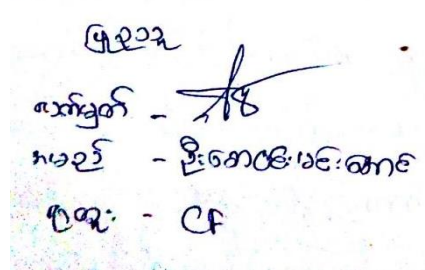 ပြုသူ
လက်မှတ် -
အမည် - ဦးဇော်မင်းအောင်
ရာထူး - CF